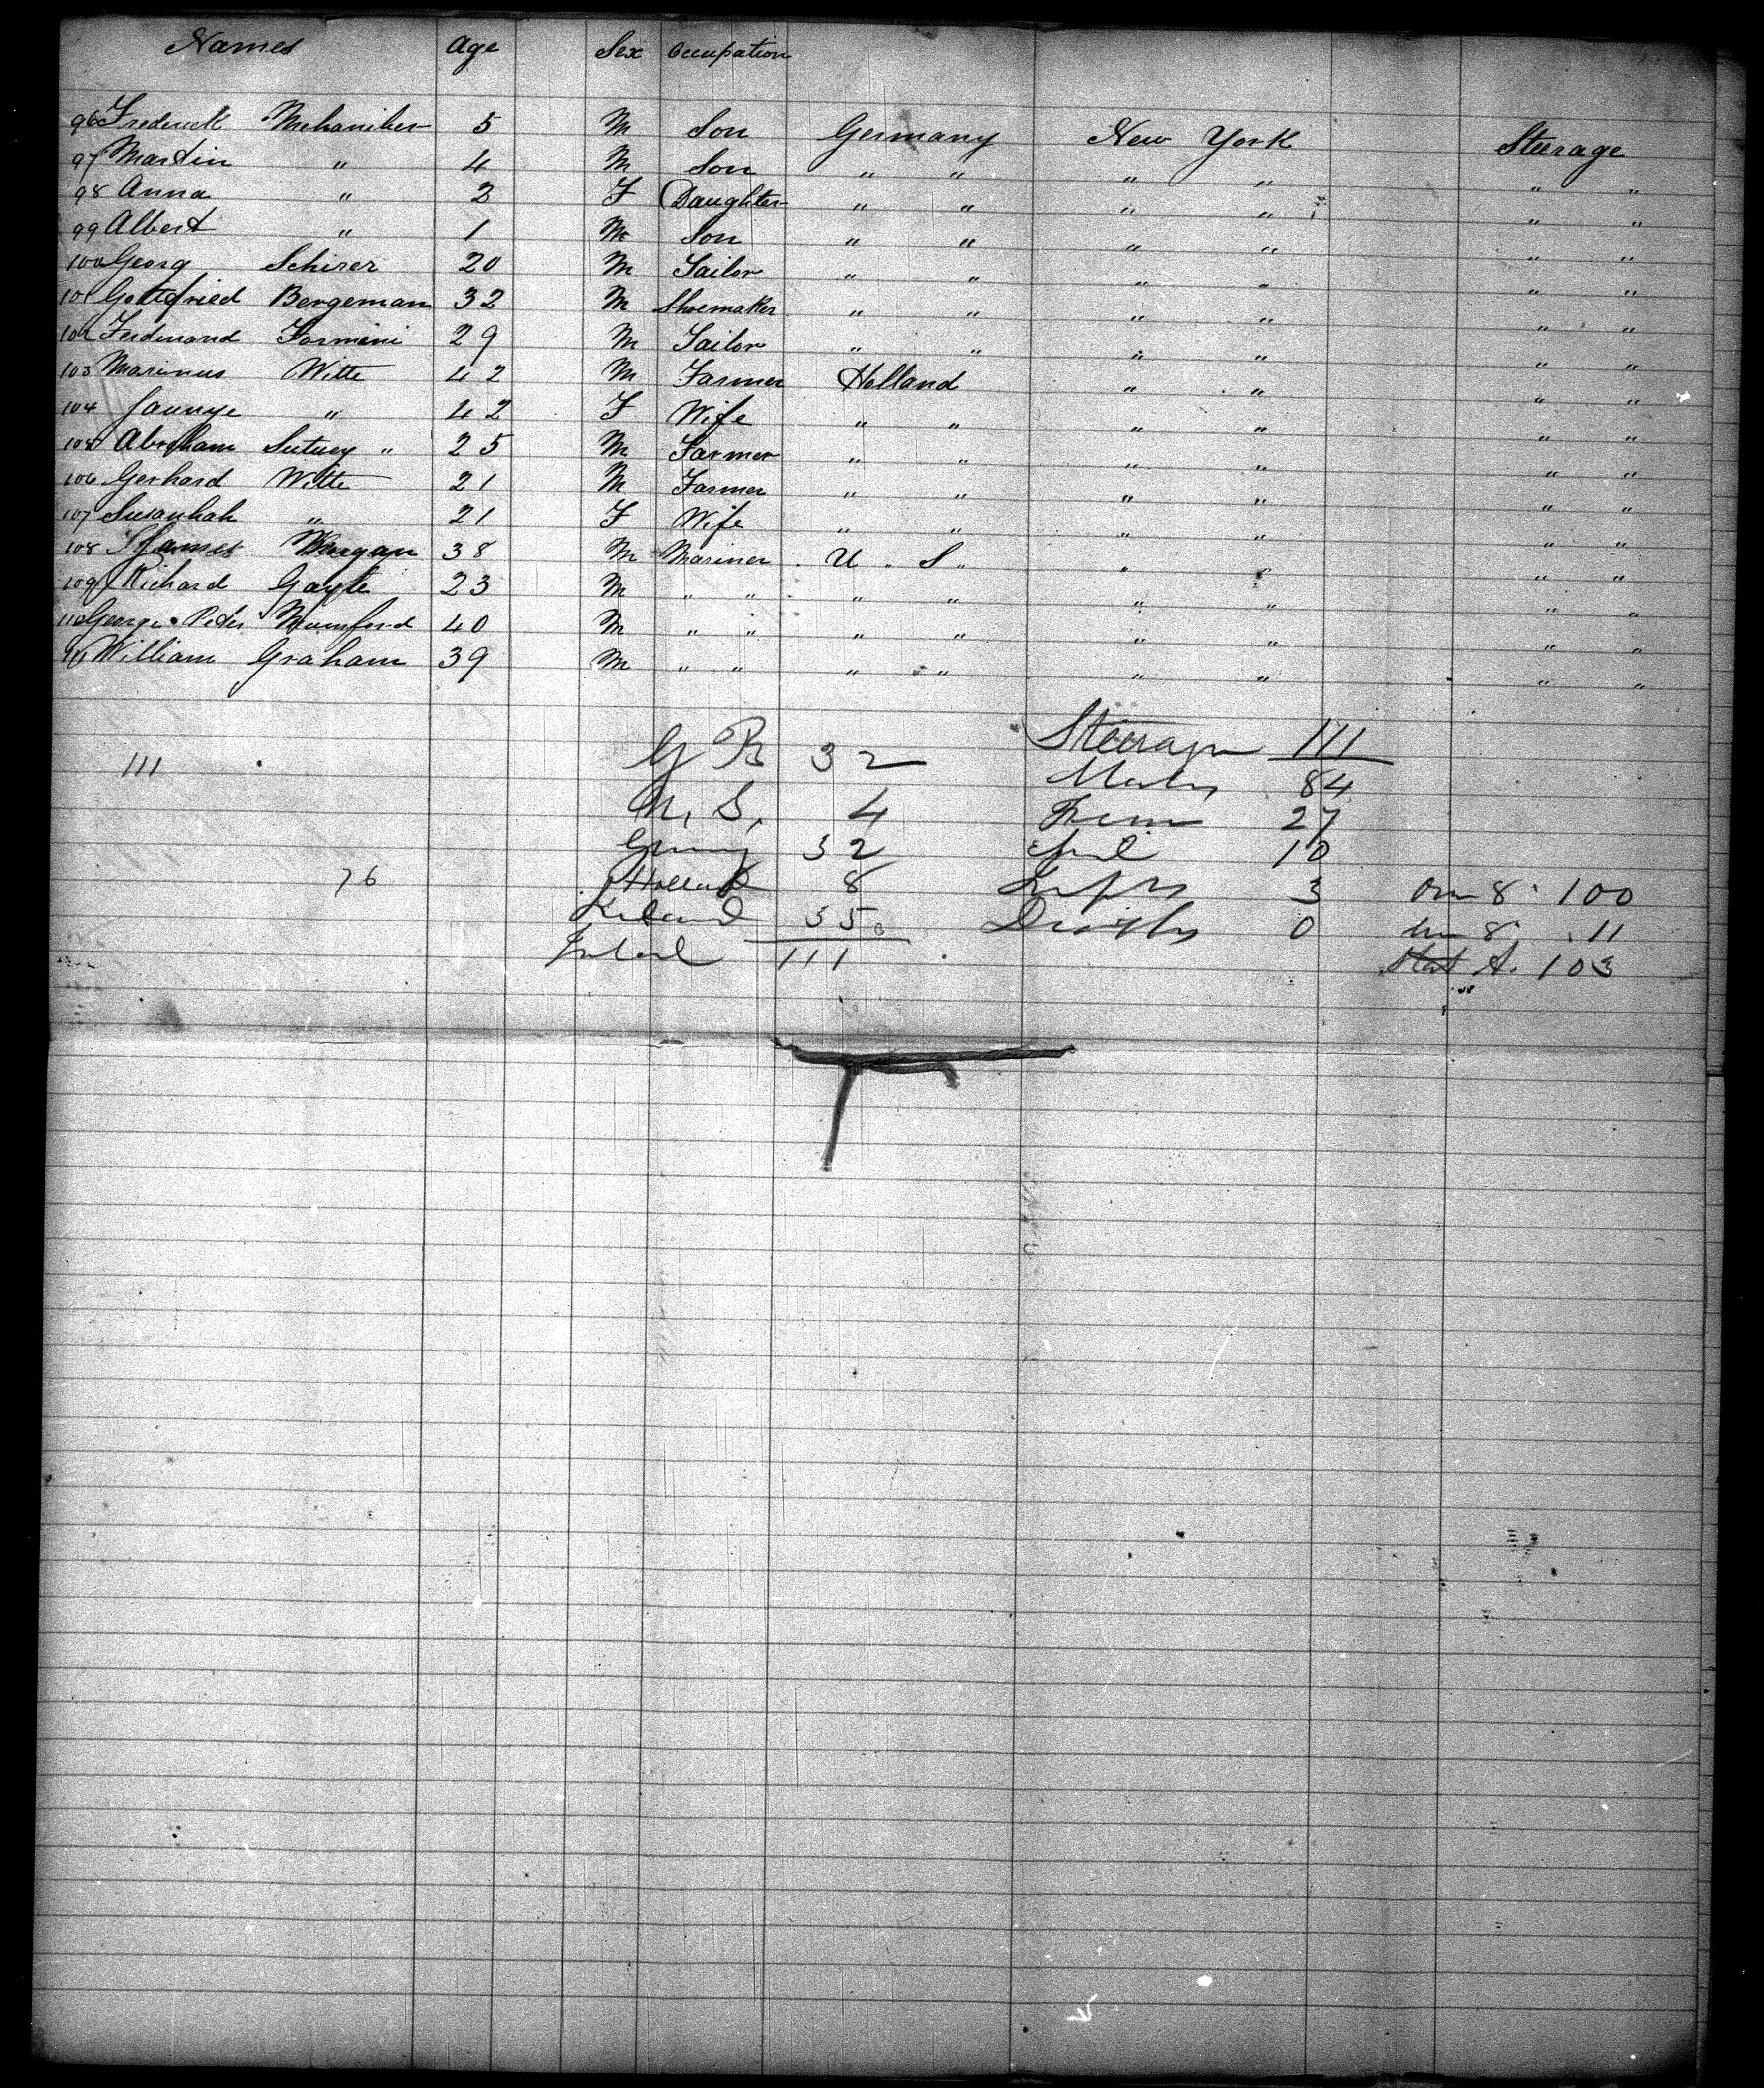 Names Age Sex Occupation
96 Frederick Mehaniker 5 M Son Germany New York Steerage
97 Martin " 4 M Son " " " " " "
98 Anna " 2 F Daughter " " " " " "
99 Albert " 1 M Son " " " " " "
100 Georg Schirer 20 M Tailor " " " " " "
101 Gottfried Bergeman 32 M Shoemaker " " " " " "
102 Ferdinand 29 M Tailor " " " " " "
103 Marinus Witte 42 M Farmer Holland " " " "
104 " 42 F Wife " " " " " "
105 Abraham " 25 M Farmer " " " " " "
106 Gerhard Witte 21 M Farmer " " " " " "
107 Susanhah " 21 F Wife " " " " " "
108 James Morgan 38 M Mariner U. S. " " " "
109 Richard Gayle 23 M " " " " " " " "
110 George Peter Mumford 40 M " " " " " " " "
111 William Graham 39 M " " " " " " " "
G B 32 Steerage 111
111 Males 84
U, S, 4 Fem 27
Germy 32 10
76 Holland 8 Infts 3 Over 8 100
Ireland 35 Deaths 0 Un 8 11
Total 111 Stat A. 103